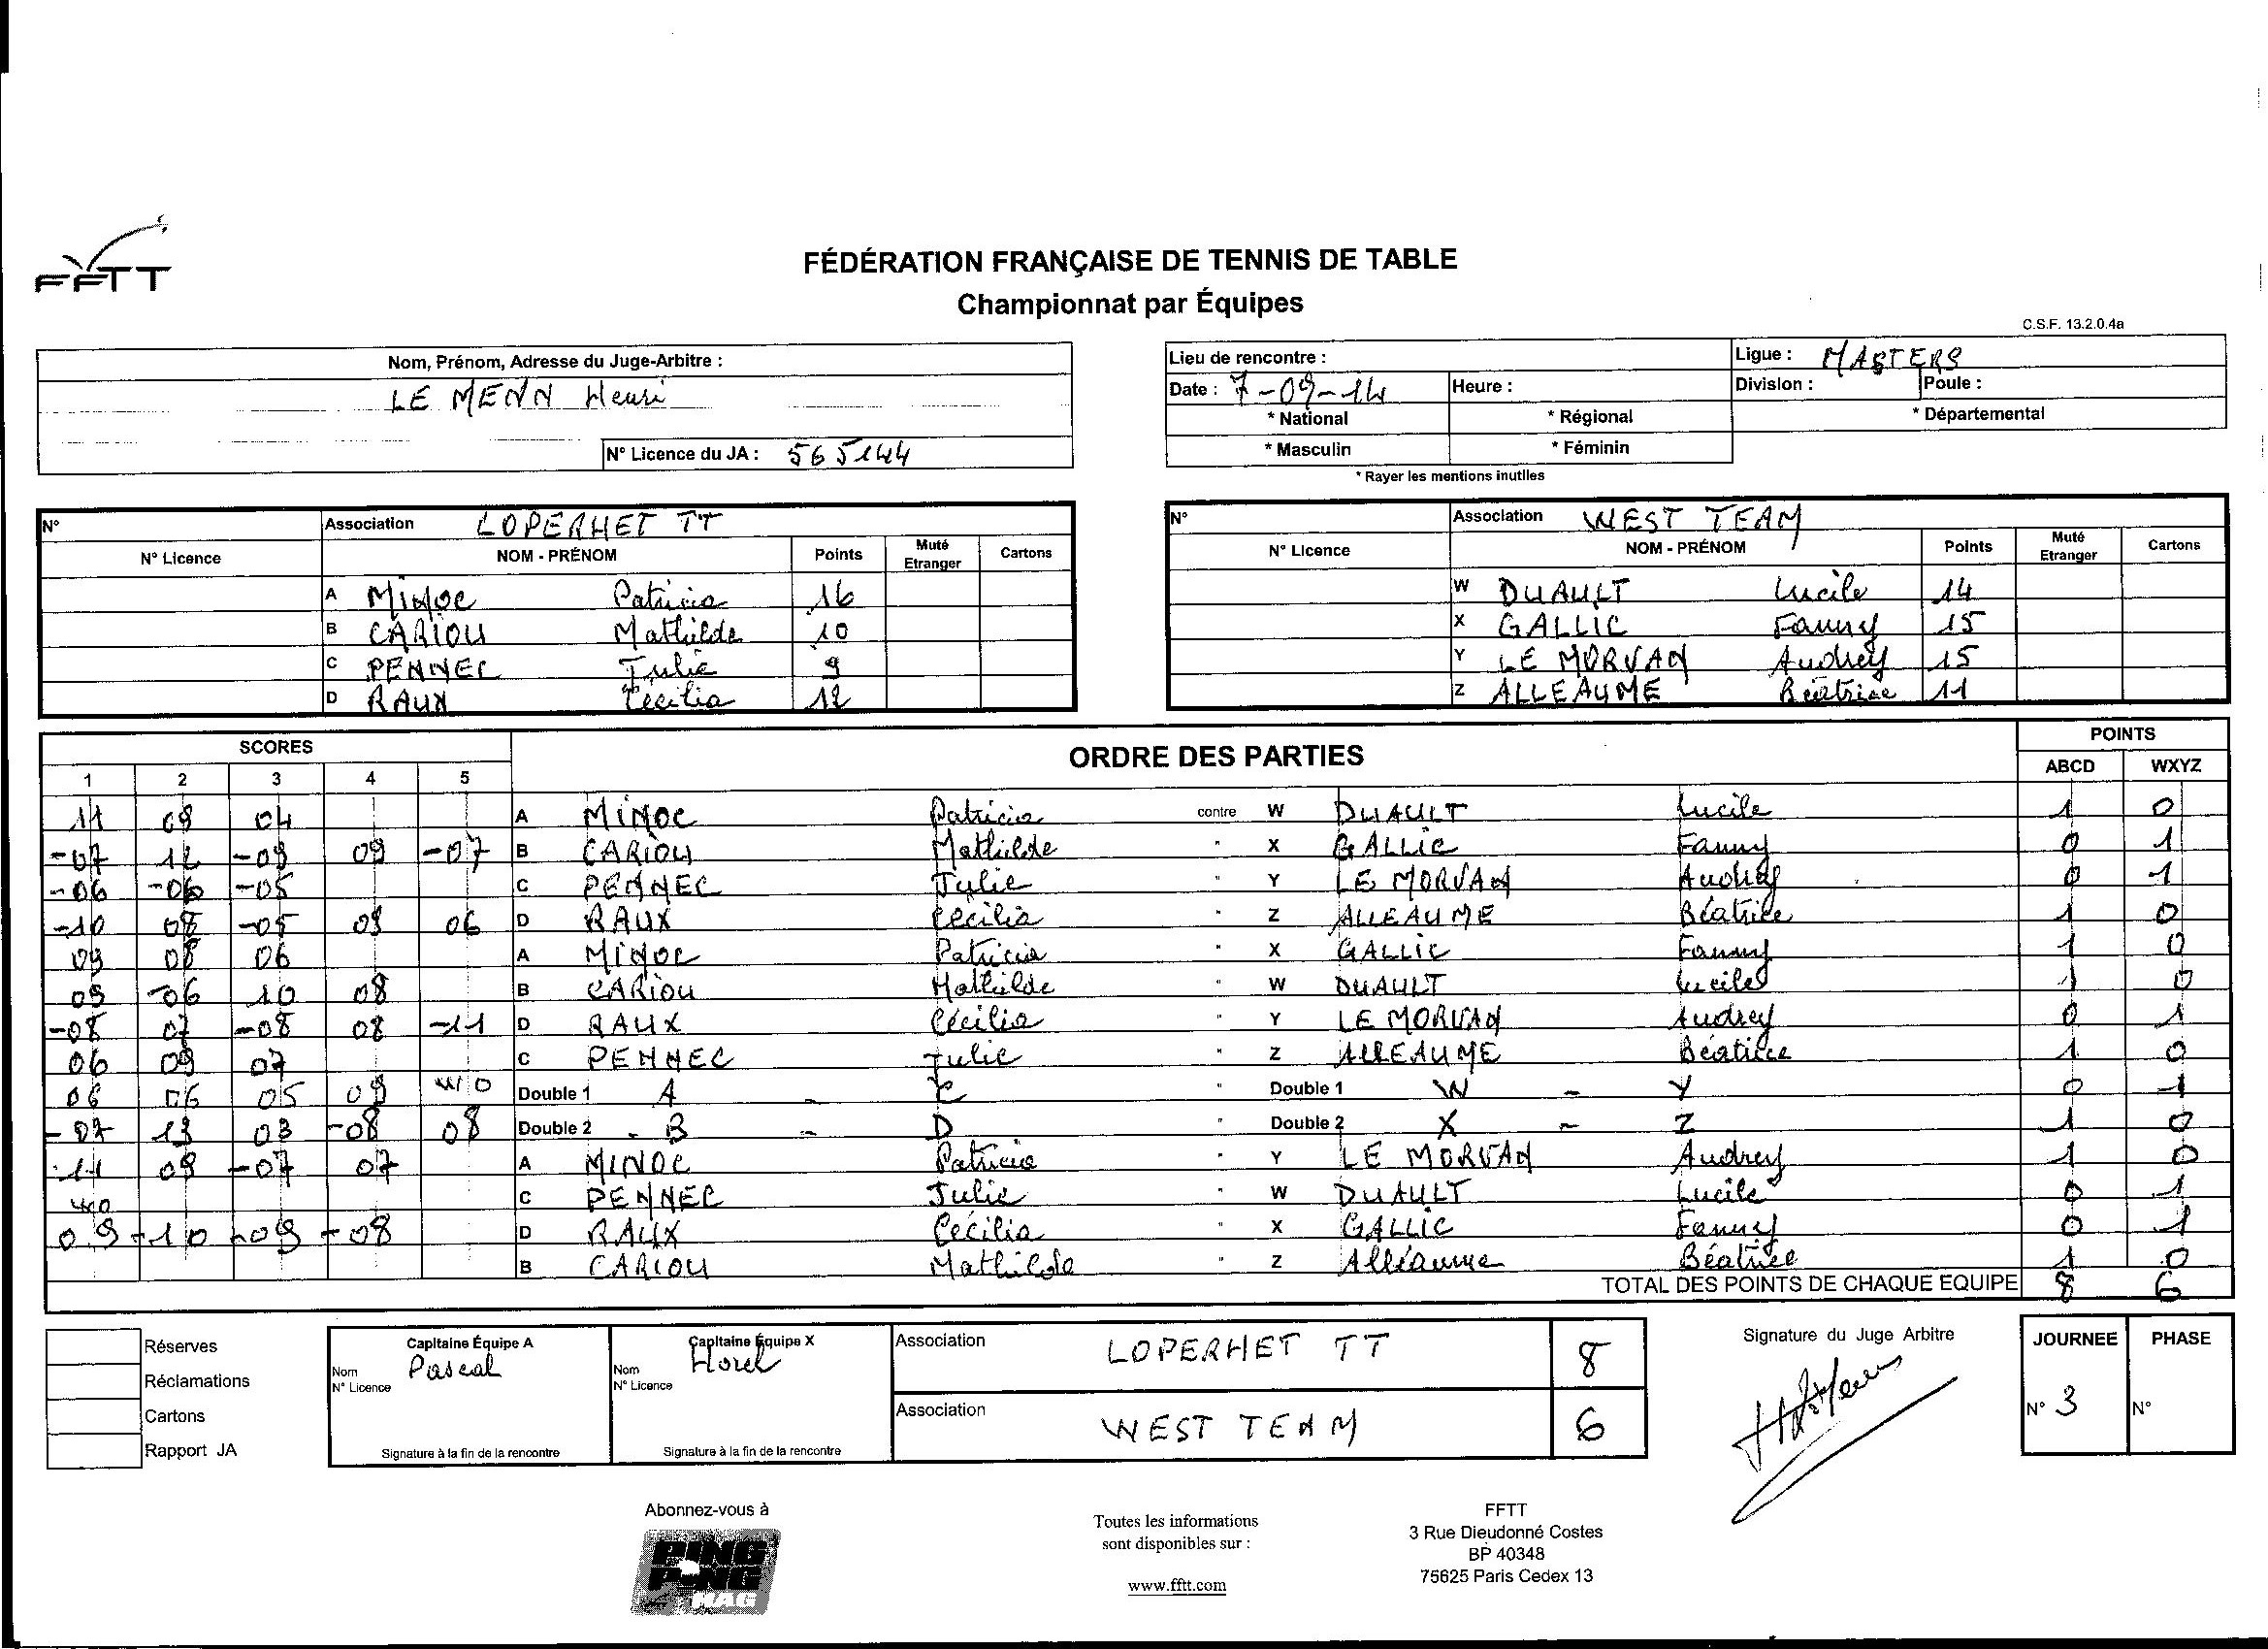 FFTT
FÉDÉRATION FRANÇAISE DE TENNIS DE TABLE
Championnat par Équipes
C.S.F. 13.2.0.4a
Nom, Prénom, Adresse du Juge-Arbitre :
LE MENN Henri
N° Licence du JA : 565144
Lieu de rencontre :
Ligue : MASTERS
Date : 7-09-14 Heure : Division : Poule :
* National * Régional * Départemental
* Masculin * Féminin
* Rayer les mentions inutiles
N° Association LOPERHET TT
N° Licence NOM - PRÉNOM Points Muté Etranger Cartons
A MINOC Patricia 16
B CARIOU Mathilde 10
C PENNEC Julie 9
D RAUX Cécilia 12
N° Association WEST TEAM
N° Licence NOM - PRÉNOM Points Muté Etranger Cartons
W DUAULT Lucile 14
X GALLIC Fanny 15
Y LE MORVAN Audrey 15
Z ALLEAUME Béatrice 11
SCORES ORDRE DES PARTIES POINTS
1 2 3 4 5 ABCD WXYZ
11 08 04 A MINOC Patricia contre W DUAULT Lucile 1 0
-07 12 -09 09 -07 B CARIOU Mathilde " X GALLIC Fanny 0 1
-06 -06 -05 C PENNEC Julie " Y LE MORVAN Audrey 0 1
-10 08 -05 09 06 D RAUX Cécilia " Z ALLEAUME Béatrice 1 0
09 08 06 A MINOC Patricia " X GALLIC Fanny 1 0
09 -06 10 08 B CARIOU Mathilde " W DUAULT Lucile 1 0
-08 07 -08 08 -11 D RAUX Cécilia " Y LE MORVAN Audrey 0 1
06 09 07 C PENNEC Julie " Z ALLEAUME Béatrice 1 0
06 06 05 09 WO Double 1 A - C " Double 1 W - Y 0 1
-07 13 03 -08 08 Double 2 B - D " Double 2 X - Z 1 0
11 09 -07 07 A MINOC Patricia " Y LE MORVAN Audrey 1 0
WO C PENNEC Julie " W DUAULT Lucile 0 1
09 -10 -09 -08 D RAUX Cécilia " X GALLIC Fanny 0 1
B CARIOU Mathilde " Z Alléaume Béatrice 1 0
TOTAL DES POINTS DE CHAQUE EQUIPE 8 6
Réserves
Réclamations
Cartons
Rapport JA
Capitaine Équipe A
Nom Pascal
N° Licence
Signature à la fin de la rencontre
Capitaine Équipe X
Nom Horel
N° Licence
Signature à la fin de la rencontre
Association LOPERHET TT 8
Association WEST TEAM 6
Signature du Juge Arbitre
JOURNEE PHASE
N° 3 N°
Abonnez-vous à
PING PONG MAG
Toutes les informations
sont disponibles sur :
www.fftt.com
FFTT
3 Rue Dieudonné Costes
BP 40348
75625 Paris Cedex 13